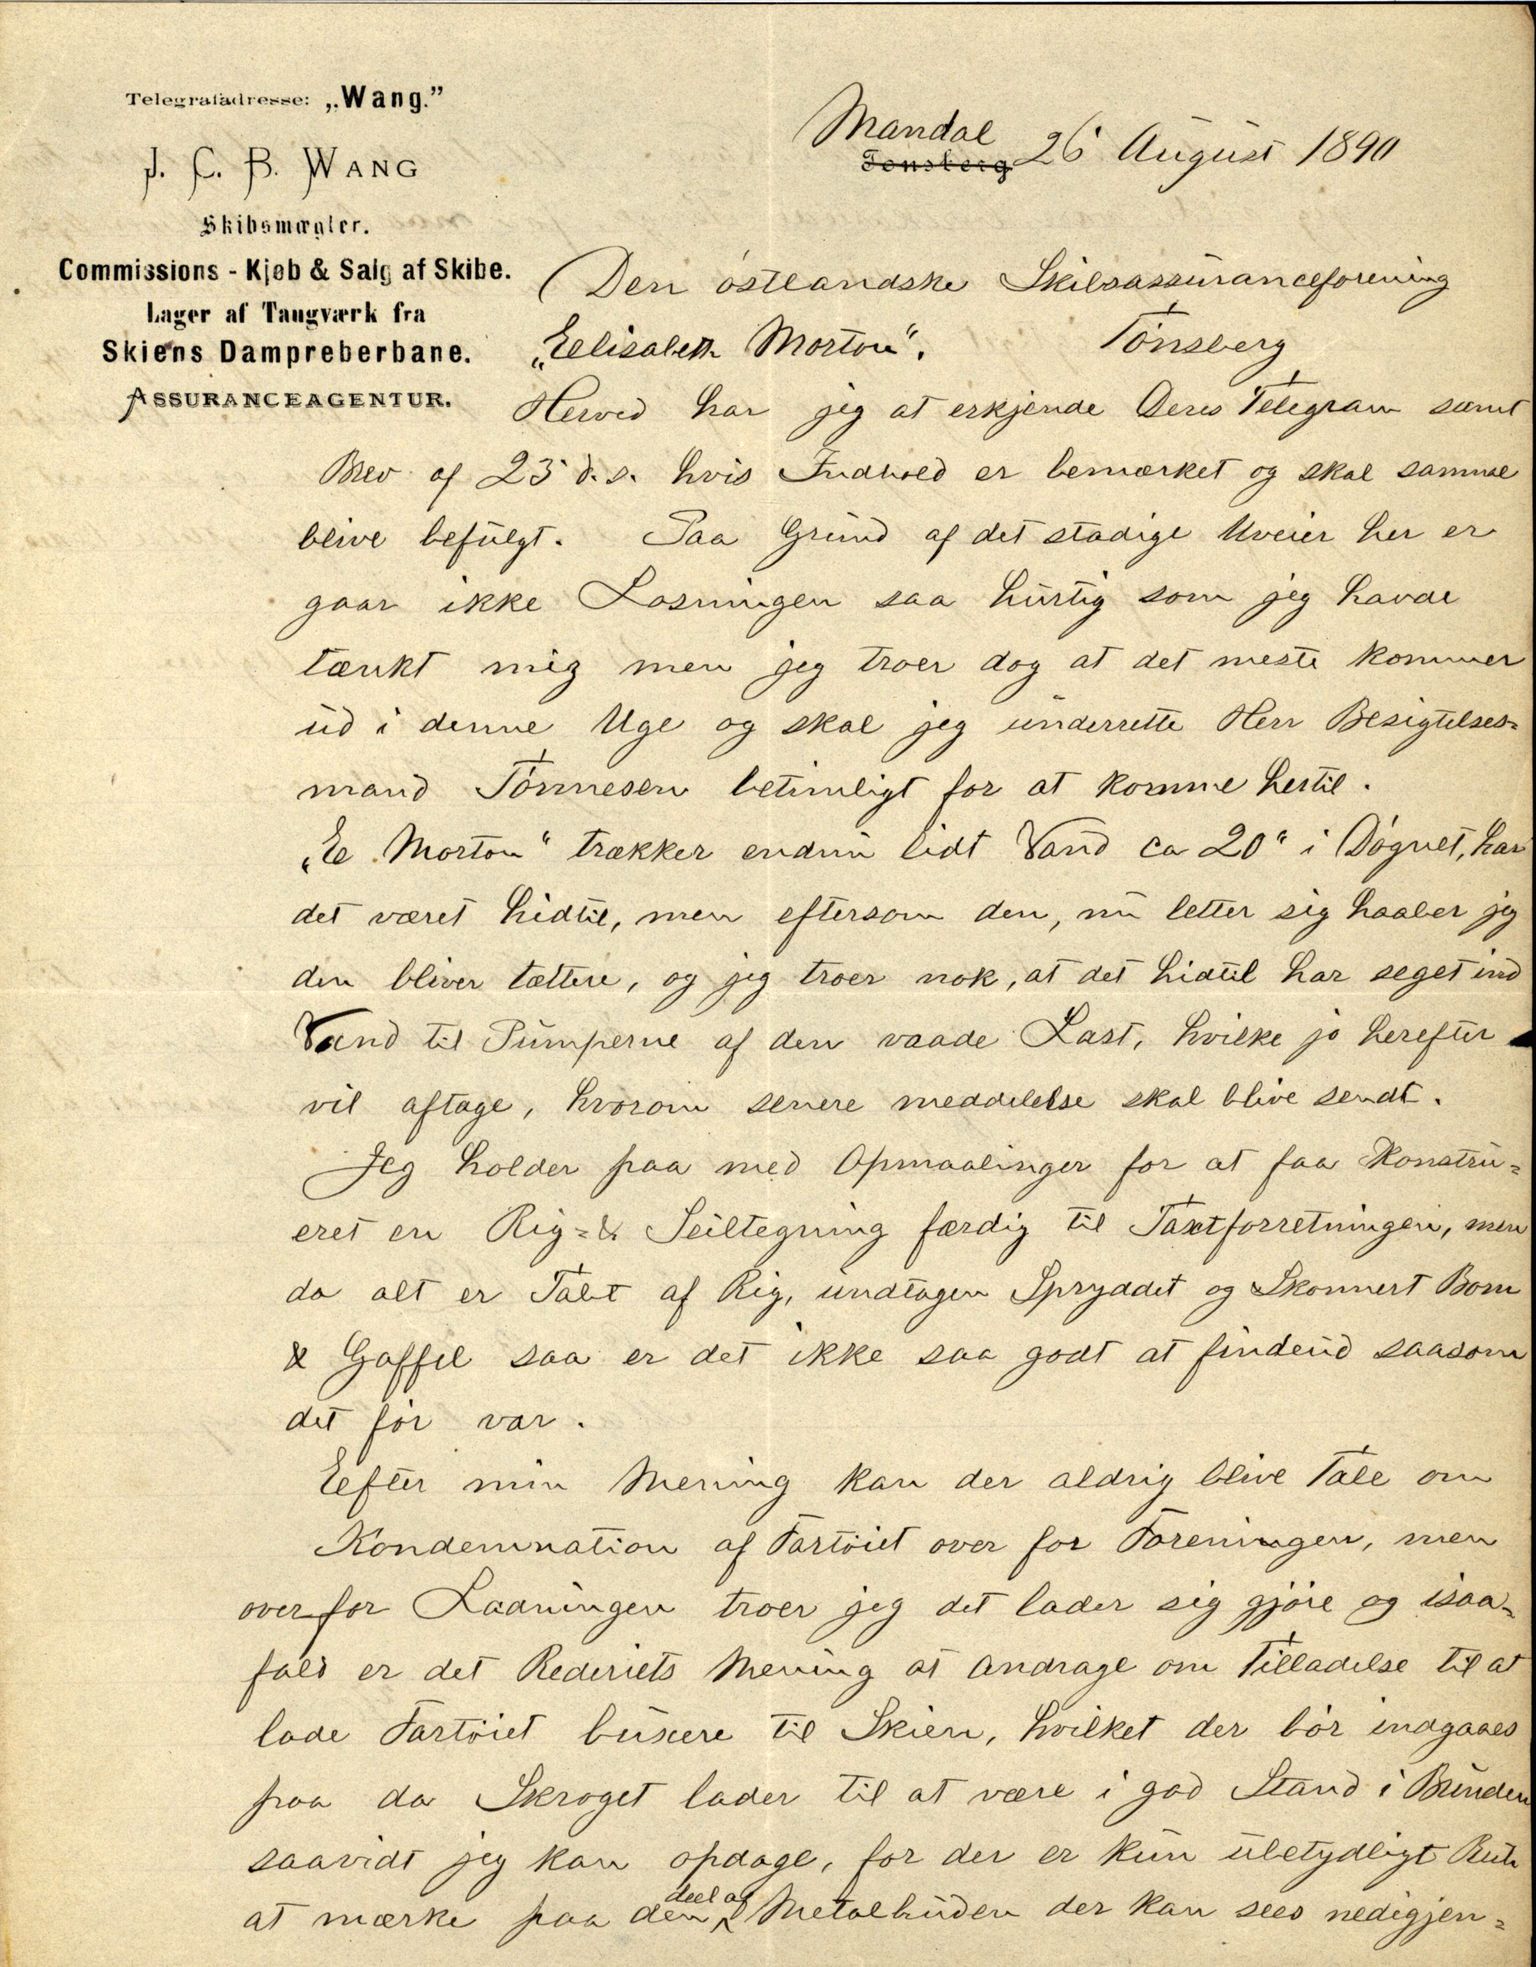 Telegrafadresse: „Wang.”
J. C. B. WANG
Skibsmægler.
Commissions - Kjøb & Salg af Skibe.
Lager af Taugværk fra
Skiens Dampreberbane.
ASSURANCEAGENTUR.
Mandal
Tønsberg 26 August 1890
Den østlandske Skibsassuranceforening
„Elisabeth Morton“. Tønsberg
Herved har jeg at erkjende Deres Telegram samt
Brev af 25 d.s. hvis Indhold er bemærket og skal samme
blive befulgt. Paa Grund af det stadige Uveier her er
gaar ikke Losningen saa hurtig som jeg havde
tænkt mig men jeg troer dog at det meste kommer
ud i denne Uge og skal jeg underrette Herr Besigtelses=
mand Tønnesen betimligt for at komme hertil.
„E Morton“ trækker endnu lidt Vand ca 20“ i Døgnet, har
det været hidtil, men eftersom den, nu letter sig haaber jeg
den bliver tættere, og jeg troer nok, at det hidtil har seget ind
Vand til Pumperne af den vaade Last, hvilke jo herefter
vil aftage, hvorom senere meddelelse skal blive sendt.
Jeg holder paa med Opmaalinger for at faa Konstru=
eret en Rig=& Seiltegning færdig til Taxtforretningen, men
da alt er Tabt af Rig, undtagen Spryddet og Skonnert Bom
& Gaffel saa er det ikke saa godt at finde ud saasom
det før var.
Efter min Mening kan der aldrig blive Tale om
Kondemnation af Fartøiet over for Foreningen, men
over for Ladningen troer jeg det lader sig gjøre og isaa=
fald er det Rederiets Mening at andrage om Tilladelse til at
lade Fartøiet buxere til Skien, hvilket der bør indgaaes
paa da Skroget lader til at være i god Stand i Bunden
saavidt jeg kan opdage, for der er kun ubetydligt
at mærke paa den deel af Metalhuden der kan sees nedigjen=